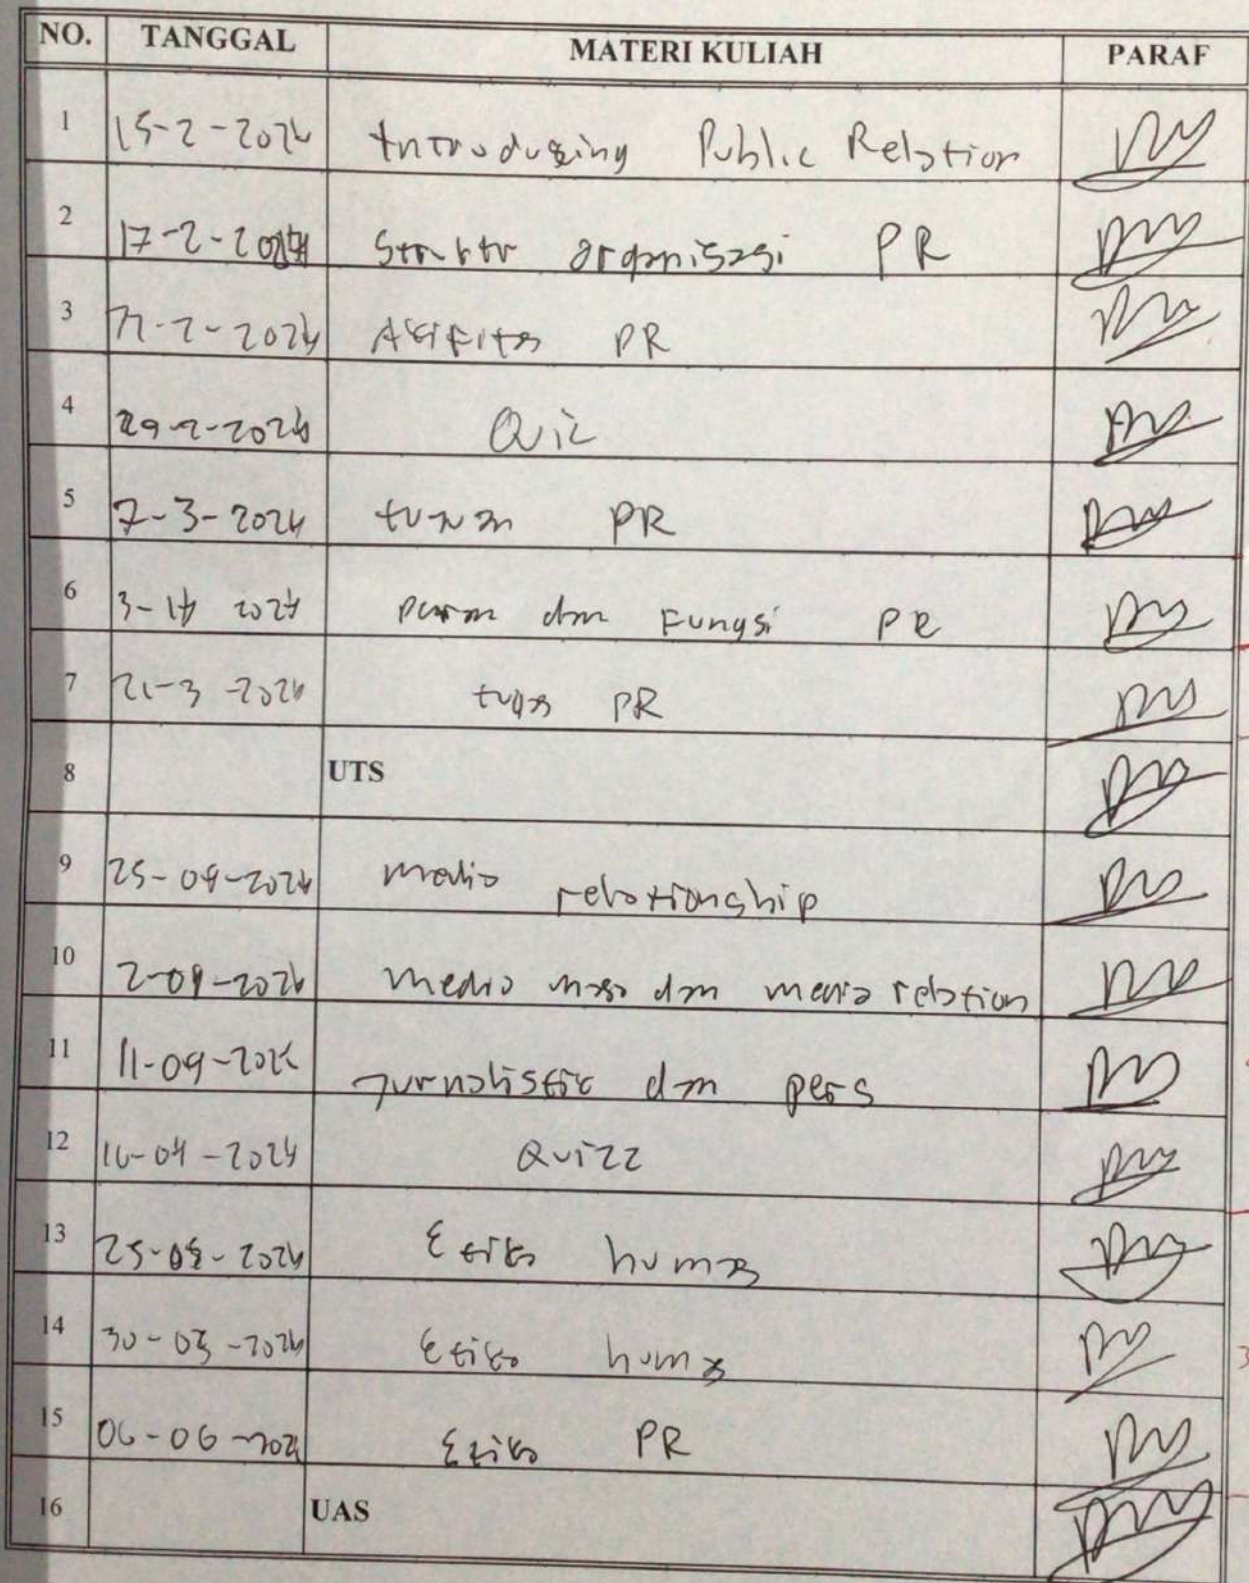 NO. TANGGAL MATERI KULIAH PARAF
1 15-2-2024 Introducing Public Relation
2 17-2-2024 Struktur organisasi PR
3 22-2-2024 Aktifitas PR
4 29-2-2024 Quiz
5 7-3-2024 tujuan PR
6 2024 peran dan Fungsi PR
7 21-3-2024 tugas PR
8 UTS
9 25-04-2024 media relationship
10 2-04-2024 media masa dan media relation
11 11-04-2024 Jurnalistik dan pers
12 16-04-2024 Quizz
13 25-05-2024 Etika humas
14 30-05-2024 Etika humas
15 06-06-2024 Etika PR
16 UAS